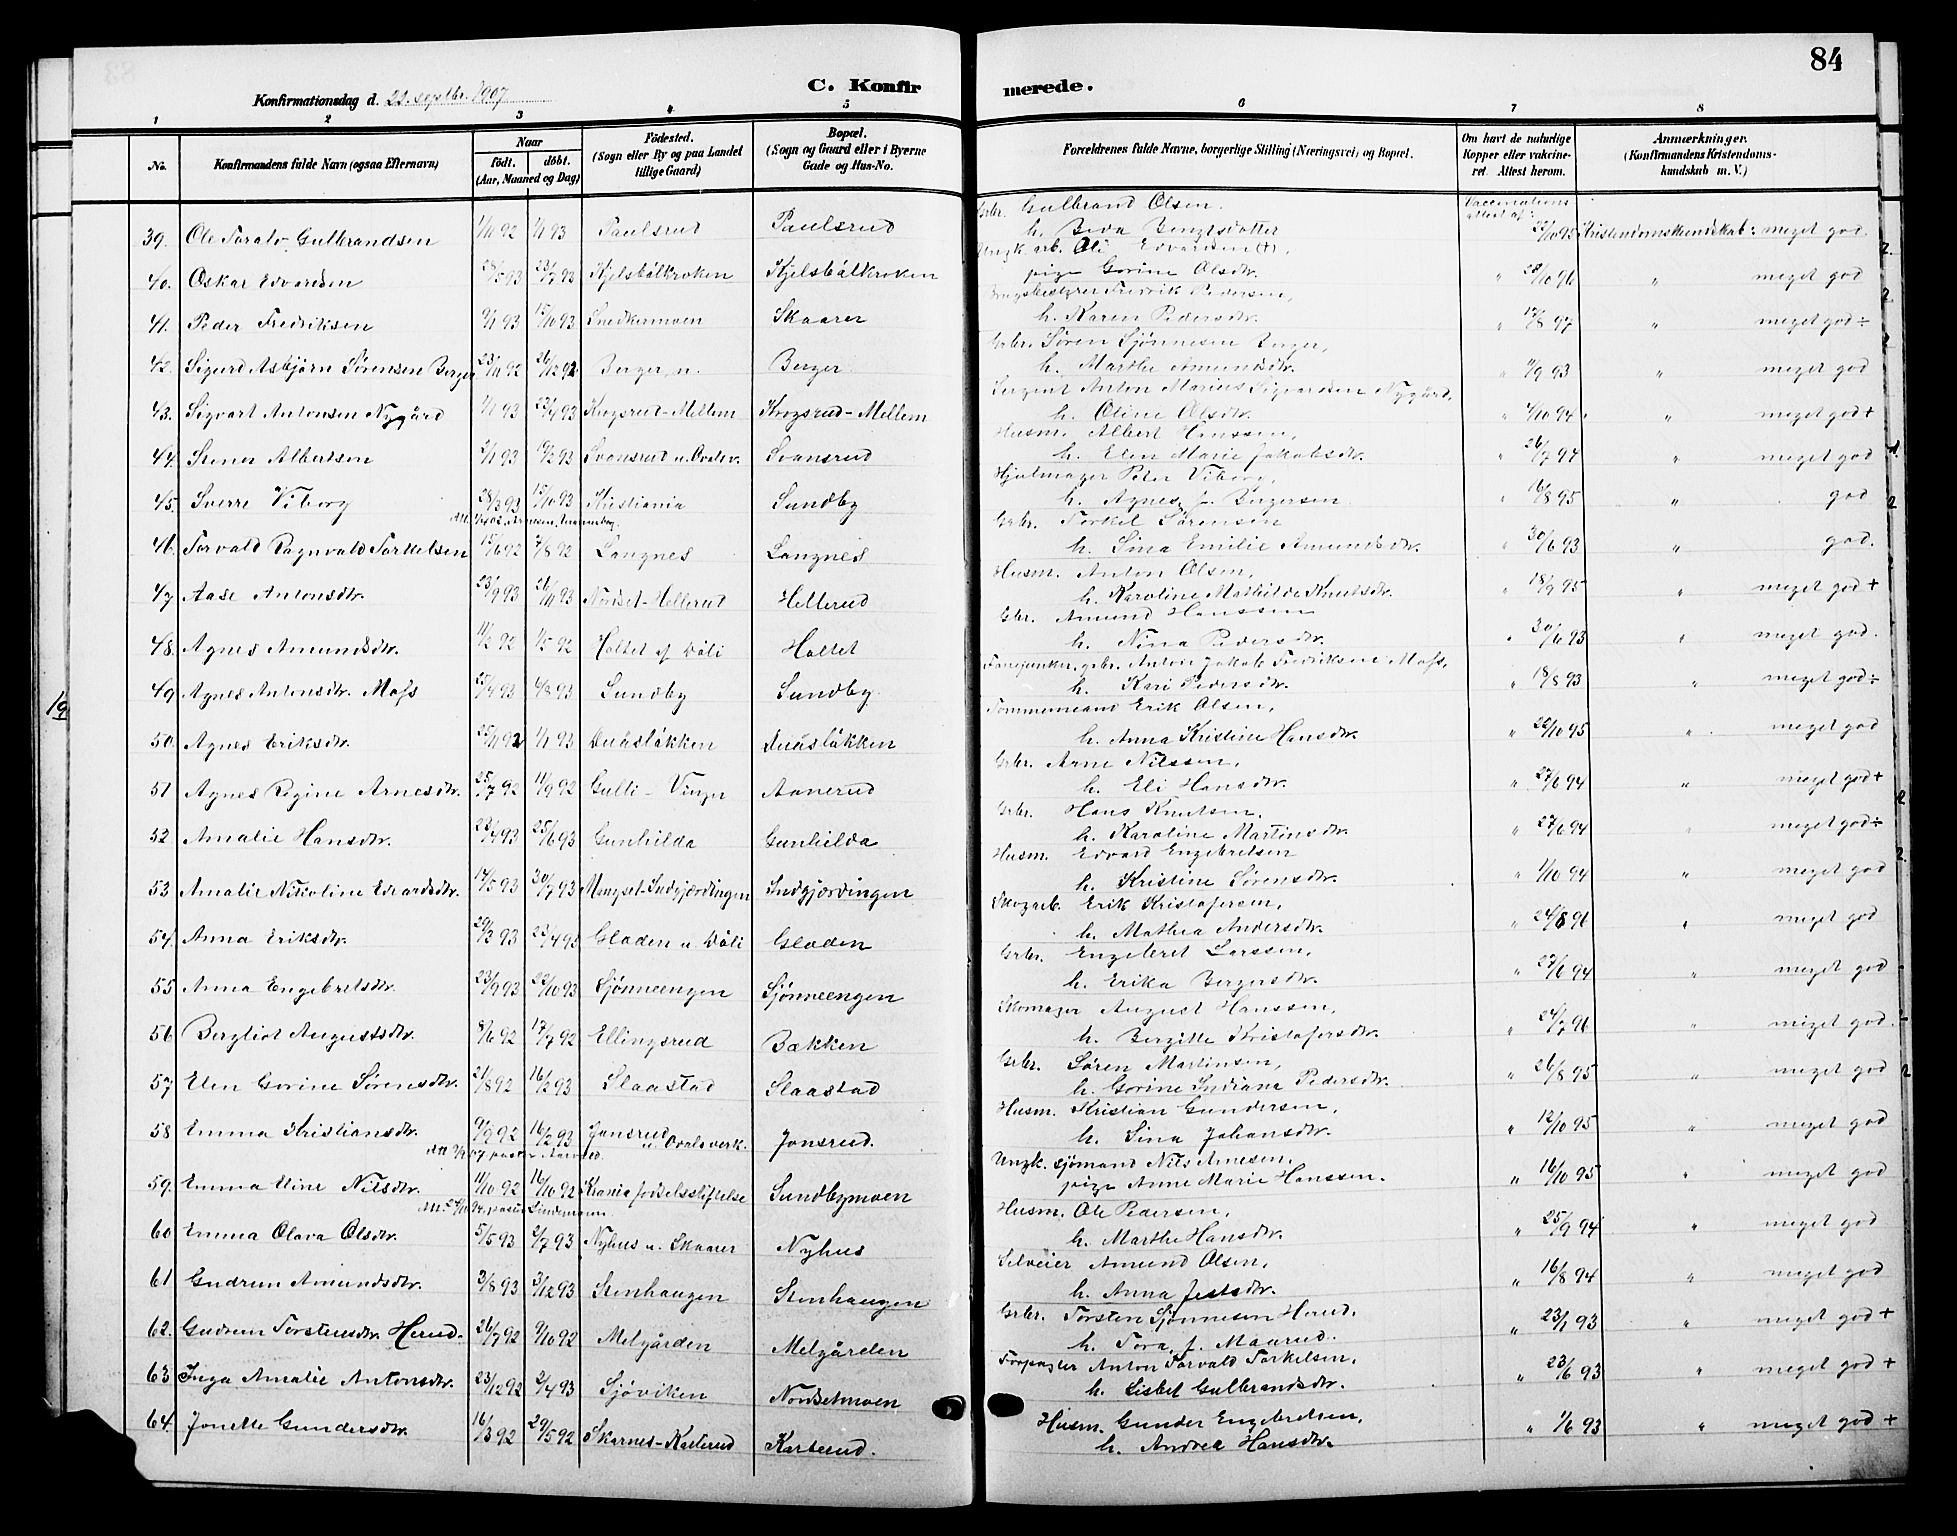 84
C. Konfirmerede.
Konfirmationsdag d. 22. septbr. 1907
1 2 3 4 5 6 7 8
No. Konfirmandens fulde Navn (ogsaa Efternavn) Naar født. døbt. (Aar, Maaned og Dag) Fødested. (Sogn eller By og paa Landet tillige Gaard) Bopæl. (Sogn og Gaard eller i Byerne Gade og Hus-No. Forældrenes fulde Navne, borgerlige Stilling (Næringsvei) og Bopæl. Om havt de naturlige Kopper eller vakcineret. Attest herom. Anmærkninger. (Konfirmandens Kristendomskundskab m. V.)
Vaccinationsattest af:
39. Ole Toralv Gulbrandsen 1/11 92 1/1 93 Paulsrud Paulsrud Grbr. Gulbrand Olsen. h. Beva Bengtsdotter 25/10 95 Kristendomskundskab: meget god.
40. Oskar Edvardsen 28/5 93 23/7 93 Kjelsbålkroken Kjelsbålkroken Ungk. arb. Oli Edvardsen (+), pige Gorine Olsdtr. " 28/10 96 " meget god
41. Peder Fredriksen 9/1 93 15/10 93 Snedkermoen Skaarer Brugsbestyrer Fredrik Pedersen, h. Karen Pedersdtr. " 17/8 97 " meget god ÷
42. Sigurd Asbjørn Sørensen Berger 23/11 92 26/12 92 Berger n. Berger Grbr. Søren Sjønnesen Berger, h. Marthe Amundsdtr. " 11/9 93 " meget god
43. Sigvart Antonsen Nygård 1/1 93 23/4 93 Krogsrud-Mellem Krogsrud-Mellem Sergent Anton Marius Sigvardsen Nygård, h. Oline Olsdtr. " 4/10 94 " meget god +
44. Stener Albertsen 2/1 93 19/3 93 Svansrud u. Ovalsv. Svansrud Husm. Albert Hanssen, h. Elen Marie Jakobsdtr. " 26/7 94 " meget god
45. Sverre Viborg 28/3 93 15/10 93 Kristiania Sundby Hjulmager Peter Viborg, h. Agnes f. Birgersen " 16/8 95 " god
46. Torvald Ragnvald Torkelsen 15/6 92 7/8 92 Langnes Langnes Grbr. Torkel Sørensen h. Lina Emilie Amundsdtr. " 30/6 93 " god.
47. Aase Antonsdtr. 23/9 93 26/11 93 Nordset-Hellerud Hellerud Husm. Anton Olsen, h. Karoline Mathilde Knutsdtr. " 18/9 95 " meget god +
48. Agnes Amundsdtr. 11/2 92 1/5 92 Holtet af Dåli Holtet Grbr. Amund Hanssen h. Nina Pedersdtr. " 30/6 93 " meget god.
49. Agnes Antonsdtr. Moss 25/4 93 4/8 93 Sundby Sundby Fanejunker, grbr. Anton Jakob Fredriksen Moss, h. Kari Pedersdtr. " 18/8 93 " meget god ÷
50. Agnes Eriksdtr. 25/11 92 1/1 93 Duåsløkken Duåsløkken Tømmermand Erik Olsen, h. Anna Kristine Hansdtr. " 22/10 95 " meget god
51 Agnes Regine Arnesdtr. 25/7 92 11/9 92 Gulli - Vinger Aanerud Grbr. Arne Nilssen, h. Eli Hansdtr. " 27/6 94 " meget god +
52. Amalie Hansdtr. 23/4 93 25/6 93 Gunhilda Gunhilda Grbr. Hans Knutsen, h. Karoline Martinsdtr. " 27/6 94 " meget god ÷
53 Amalie Nikoline Edvardsdtr. 14/5 93 30/7 93 Mangset-Indgjærdingen Indgjærdingen Husm. Edvard Engebretsen h. Kristine Sørensdtr. " 1/10 94 " meget god
54. Anna Eriksdtr. 29/3 93 23/4 93 Gladen u Dåli Gladen Skogarb. Erik Kristofersen, h. Mathea Andersdtr. " 24/8 96 " meget god
55 Anna Engebretsdtr. 23/9 93 22/10 93 Sjønneengen Sjønneengen Grbr. Engebret Larssen, h. Erika Bergersdtr. " 27/6 94 " meget god
56 Bergliot Augustsdtr. 8/6 92 17/7 92 Ellingsrud Bækken Skomager August Hanssen, h. Bergitte Kristofersdtr. " 24/7 96 " meget god.
57 Elen Gorine Sørensdtr. 21/8 92 16/2 93 Slaastad Slaastad Grbr. Søren Martinsen, h. Gorine Indiana Pedersdtr. " 26/8 95 " meget god
58 Emma Kristiansdtr. 9/9 92 16/2 93 Jonsrud u. Ovalsverk. Jonsrud. Husm. Kristian Gundersen, h. Lina Johansdtr. " 12/10 95 " meget god
59. Emma Eline Nilsdtr. 11/10 92 16/10 92 Krania fødselsstiftelse Sundbymoen Ungk. sjømand Nils Arnesen, pige Anne Marie Hanssen. " 16/10 95 " meget god
60 Emma Olava Olsdtr. 5/5 93 2/7 93 Nyhus u. Skaarer Nyhus Husm. Ole Pedersen, h. Marthe Hansdtr. " 25/9 94 " meget god
61 Gudrun Amundsdtr. 3/8 93 3/12 93 Stenhaugen Stenhaugen Selveier Amund Olsen, h. Anna Jensdtr. " 16/8 94 " meget god
62. Gudrun Torstensdtr. Herud. 26/7 92 9/10 92 Melgården Melgården Grbr. Torsten Sjønnesen Herud, h. Tora f. Maarud. " 23/1 93 " meget god +
63 Inga Amalie Antonsdtr. 23/12 92 2/4 93 Sjøviken Nordsetmoen Forpagter Anton Torvald Torkelsen, h. Lisbet Gulbrandsdtr. " 23/6 93 " meget god +
64. Jonette Gundersdtr. 16/3 92 29/5 92 Skarnes-Karterud Karterud. Husm. Gunder Engebretsen, h. Andrea Hansdtr. " 1/6 93 " meget god +